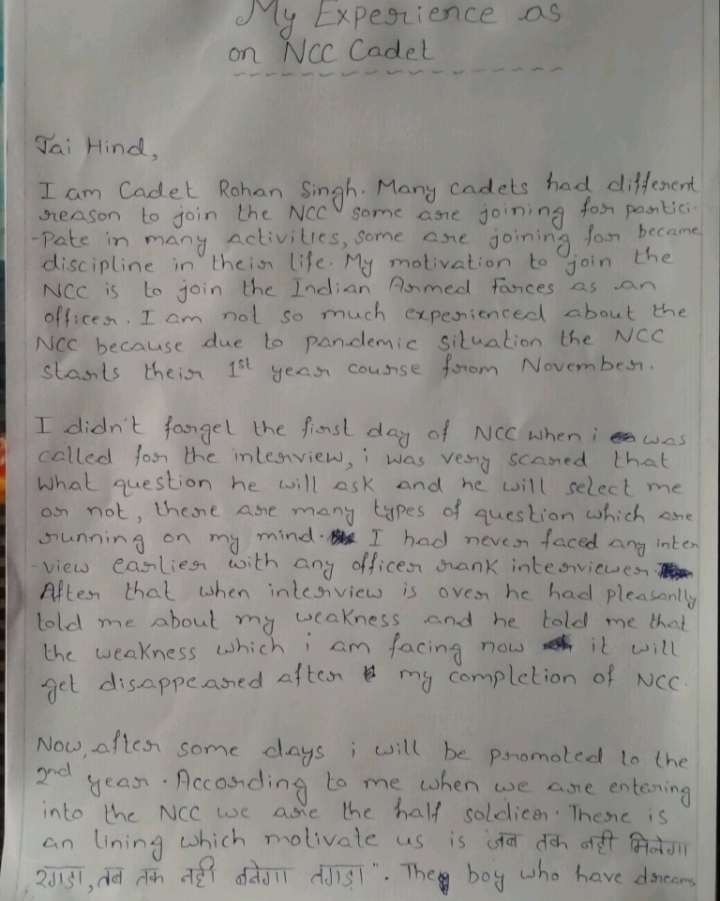 My Experience as
on NCC Cadet
Jai Hind,
I am Cadet Rohan Singh. Many cadets had different
reason to join the NCC some are joining for partici-
-Pate in many activities, some are joining for became
discipline in their life. My motivation to join the
NCC is to join the Indian Armed Forces as an
officer. I am not so much experienced about the
NCC because due to pandemic situation the NCC
starts their 1st year course from November.
I didn't forget the first day of NCC when i was
called for the interview, i was very scared that
what question he will ask and he will select me
or not, there are many types of question which are
running on my mind. I had never faced any inter
-view earlier with any officer rank interviewer
After that when interview is over he had pleasantly
told me about my weakness and he told me that
the weakness which i am facing now it will
get disappeared after my completion of NCC.
Now, after some days i will be promoted to the
2nd year. According to me when we are entering
into the NCC we are the half soldier. There is
an lining which motivate us is जब तक नही मिलेगा
रगड़ा, तब तक नही बनेगा तगड़ा". The boy who have dreams